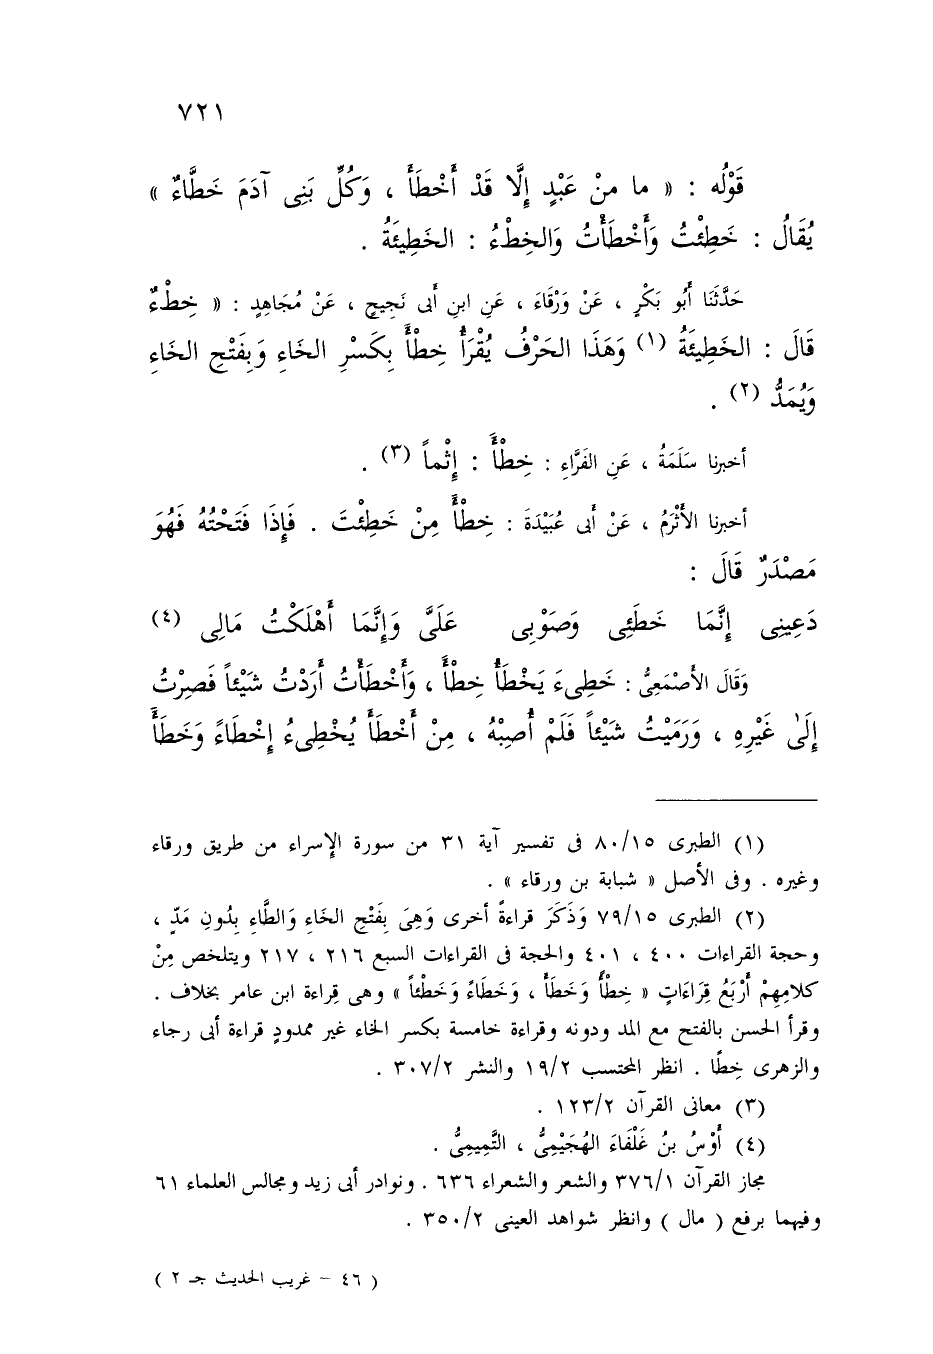 ٧٢١
قَوْلُه : « ما منْ عَبْدٍ إِلَّا قَدْ أَخْطَأَ ، وَكُلِّ بَنِى آدَمَ خَطَّاءٌ »
يُقَالُ : خَطِئْتُ وَأَخْطَأْتُ وَالخِطْءُ : الخَطِيئَةُ .
حَدَّثَنَا أَبُو بَكْرٍ ، عَنْ وَرْقَاءَ ، عَنِ ابنِ أَبى نَجِيحٍ ، عَنْ مُجَاهِدٍ : « خِطْءٌ
قَالَ : الخَطِيئَةُ (١) وَهَذَا الحَرْفُ يُقْرَأُ خِطْأً بِكَسْرِ الخَاءِ وَبِفَتْحِ الخَاءِ
وَيُمَدُّ (٢) .
أخبرنا سَلَمَةُ ، عَنِ الفَرَّاءِ : خِطْأً : إِثْماً (٣) .
أخبرنا الأَثْرَمُ ، عَنْ أَبى عُبَيْدَةَ : خِطْأً مِنْ خَطِئْتَ . فَإِذَا فَتَحْتُهُ فَهُوَ
مَصْدَرٌ قَالَ :
دَعِينِى إِنَّمَا خَطَئِى وَصَوْبِى عَلَىَّ وَإِنَّمَا أَهْلَكْتُ مَالِى (٤)
وَقَالَ الأَصْمَعِىُّ : خَطِىءَ يَخْطَأُ خِطْأً ، وَأَخْطَأْتُ أَرَدْتُ شَيْئاً فَصِرْتُ
إِلَىٰ غَيْرِهِ ، وَرَمَيْتُ شَيْئاً فَلَمْ أُصِبْهُ ، مِنْ أَخْطَأَ يُخْطِىءُ إِخْطَاءً وَخَطَأً
(١) الطبرى ٨٠/١٥ فى تفسير آية ٣١ من سورة الإسراء من طريق ورقاء
وغيره . وفى الأصل « شبابة بن ورقاء » .
(٢) الطبرى ٧٩/١٥ وَذَكَرَ قراءةً أخرى وَهِىَ بِفَتْحِ الخَاءِ وَالطَّاءِ بِدُونِ مَدّ ،
وحجة القراءات ٤٠٠ ، ٤٠١ والحجة فى القراءات السبع ٢١٦ ، ٢١٧ ويتلخص مِنْ
كلامِهِمْ أَرْبَعُ قِرَاءَاتٍ « خِطْأً وَخَطَأً ، وَخَطَاءً وَخَطْئاً » وهى قِراءة ابن عامر بخلاف .
وقرأ الحسن بالفتح مع المد ودونه وقراءة خامسة بكسر الخاء غير ممدودٍ قراءة أبى رجاء
والزهرى خِطًا . انظر المحتسب ١٩/٢ والنشر ٣٠٧/٢ .
(٣) معانى القرآن ١٢٣/٢ .
(٤) أَوْسُ بنُ غَلْفَاءَ الهُجَيْمِىُّ ، التَّمِيمِىُّ .
مجاز القرآن ٣٧٦/١ والشعر والشعراء ٦٣٦ . ونوادر أبى زيد ومجالس العلماء ٦١
وفيهما برفع ( مال ) وانظر شواهد العينى ٣٥٠/٢ .
( ٤٦ – غريب الحديث جـ ٢ )